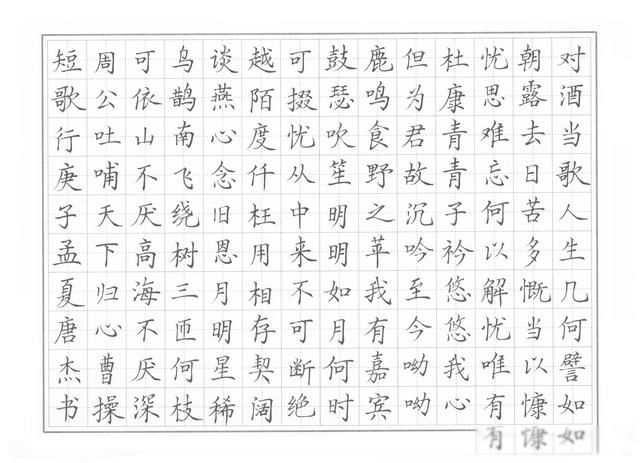 对酒当歌人生几何譬如
朝露去日苦多慨当以慷
忧思难忘何以解忧唯有
杜康青青子衿悠悠我心
但为君故沉吟至今呦呦
鹿鸣食野之苹我有嘉宾
鼓瑟吹笙明明如月何时
可掇忧从中来不可断绝
越陌度仟枉用相存契阔
谈燕心念旧恩月明星稀
乌鹊南飞绕树三匝何枝
可依山不厌高海不厌深
周公吐哺天下归心曹操
短歌行庚子孟夏唐杰书
有慷如